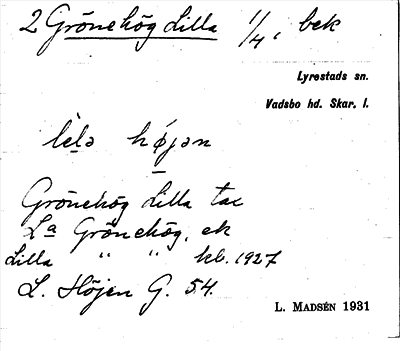 2 Grönehög Lilla 1/4, bek
Lyrestads sn.
Vadsbo hd. Skar. l.
lèlə hǿjən
Grönehög Lilla tac
La Grönehög, ek
Lilla " " kb. 1927
L. Höjen G. 54.
L. MADSÉN 1931